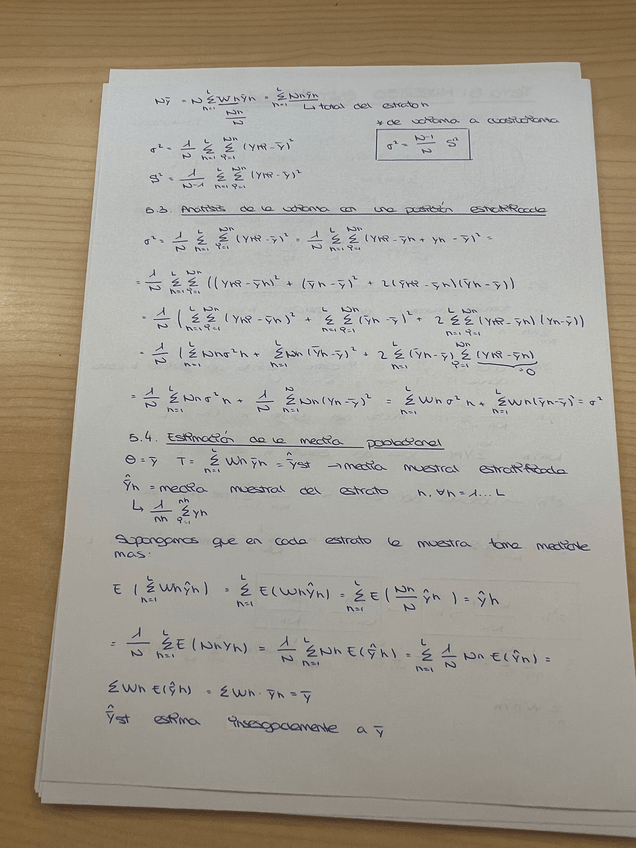 Nȳ = N Σ_{h=1}^{L} Wh ȳh = Σ_{h=1}^{L} Nh ȳh
Nh/N
↳ total del estrato h
* de varianza a cuasivarianza
σ² = 1/N Σ_{h=1}^{L} Σ_{i=1}^{Nh} (Yhi - ȳ)²
σ² = (N-1)/N S²
S² = 1/(N-1) Σ_{h=1}^{L} Σ_{i=1}^{Nh} (Yhi - ȳ)²
5.3. Análisis de la varianza con una partición estratificada
σ² = 1/N Σ_{h=1}^{L} Σ_{i=1}^{Nh} (Yhi - ȳ)² = 1/N Σ_{h=1}^{L} Σ_{i=1}^{Nh} (Yhi - ȳh + yh - ȳ)² =
= 1/N Σ_{h=1}^{L} Σ_{i=1}^{Nh} ((Yhi - ȳh)² + (ȳh - ȳ)² + 2(Yhi - ȳh)(ȳh - ȳ))
= 1/N (Σ_{h=1}^{L} Σ_{i=1}^{Nh} (Yhi - ȳh)² + Σ_{h=1}^{L} Σ_{i=1}^{Nh} (ȳh - ȳ)² + 2 Σ_{h=1}^{L} Σ_{i=1}^{Nh} (Yhi - ȳh)(Yh - ȳ))
= 1/N (Σ_{h=1}^{L} Nh σ²h + Σ_{h=1}^{L} Nh (ȳh - ȳ)² + 2 Σ_{h=1}^{L} (ȳh - ȳ) Σ_{i=1}^{Nh} (Yhi - ȳh)
=0
= 1/N Σ_{h=1}^{L} Nh σ²h + 1/N Σ_{h=1}^{N} Nh (Yh - ȳ)² = Σ_{h=1}^{L} Wh σ²h + Σ_{h=1}^{L} Wh (ȳh - ȳ)² = σ²
5.4. Estimación de la media poblacional
θ = ȳ T = Σ_{h=1}^{L} Wh ȳh = ŷst → media muestral estratificada
Ŷh = media muestral del estrato h, ∀h = 1... L
↳ 1/nh Σ_{i=1}^{nh} yh
Supongamos que en cada estrato la muestra tome mediante
mas:
E (Σ_{h=1}^{L} Wh ŷh) = Σ_{h=1}^{L} E(Wh ŷh) = Σ_{h=1}^{L} E (Nh/N ŷh) = ŷh
= 1/N Σ_{h=1}^{L} E (Nh Yh) = 1/N Σ_{h=1}^{L} Nh E(ŷh) = Σ_{h=1}^{L} 1/N Nh E(ŷh) =
Σ Wh E(ŷh) = Σ Wh · ȳh = ȳ
Ŷst estima insesgadamente a ȳ